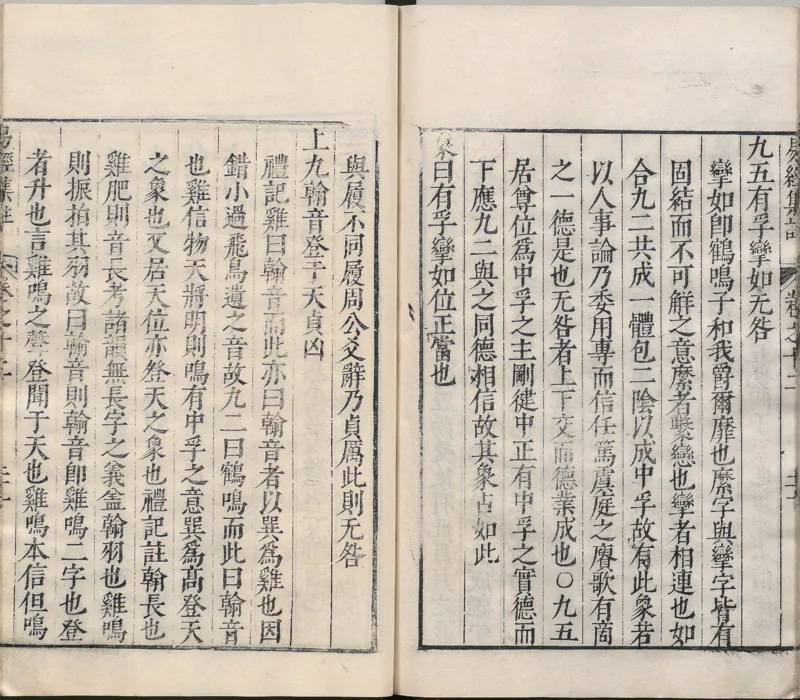 九五有孚攣如无咎
攣如即鶴鳴子和我爵爾靡也縻字與攣字皆有
固結而不可解之意縻者繫戀也攣者相連也如
合九二共成一體包二陰以成中孚故有此象若
以人事論乃委用專而信任篤虞庭之賡歌有商
之一德是也无咎者上下交而德業成也○九五
居尊位爲中孚之主剛健中正有中孚之實德而
下應九二與之同德相信故其象占如此
象曰有孚攣如位正當也
與履不同履周公爻辭乃貞厲此則无咎
上九翰音登于天貞凶
禮記雞曰翰音而此亦曰翰音者以巽爲雞也因
錯小過飛鳥遺之音故九二曰鶴鳴而此曰翰音
也雞信物天將明則鳴有中孚之意巽爲高登天
之象也又居天位亦登天之象也禮記註翰長也
雞肥則音長考諸韻無長字之義盖翰羽也雞鳴
則振拍其羽故曰翰音則翰音即雞鳴二字也登
者升也言雞鳴之聲登聞于天也雞鳴本信但鳴
易經集註